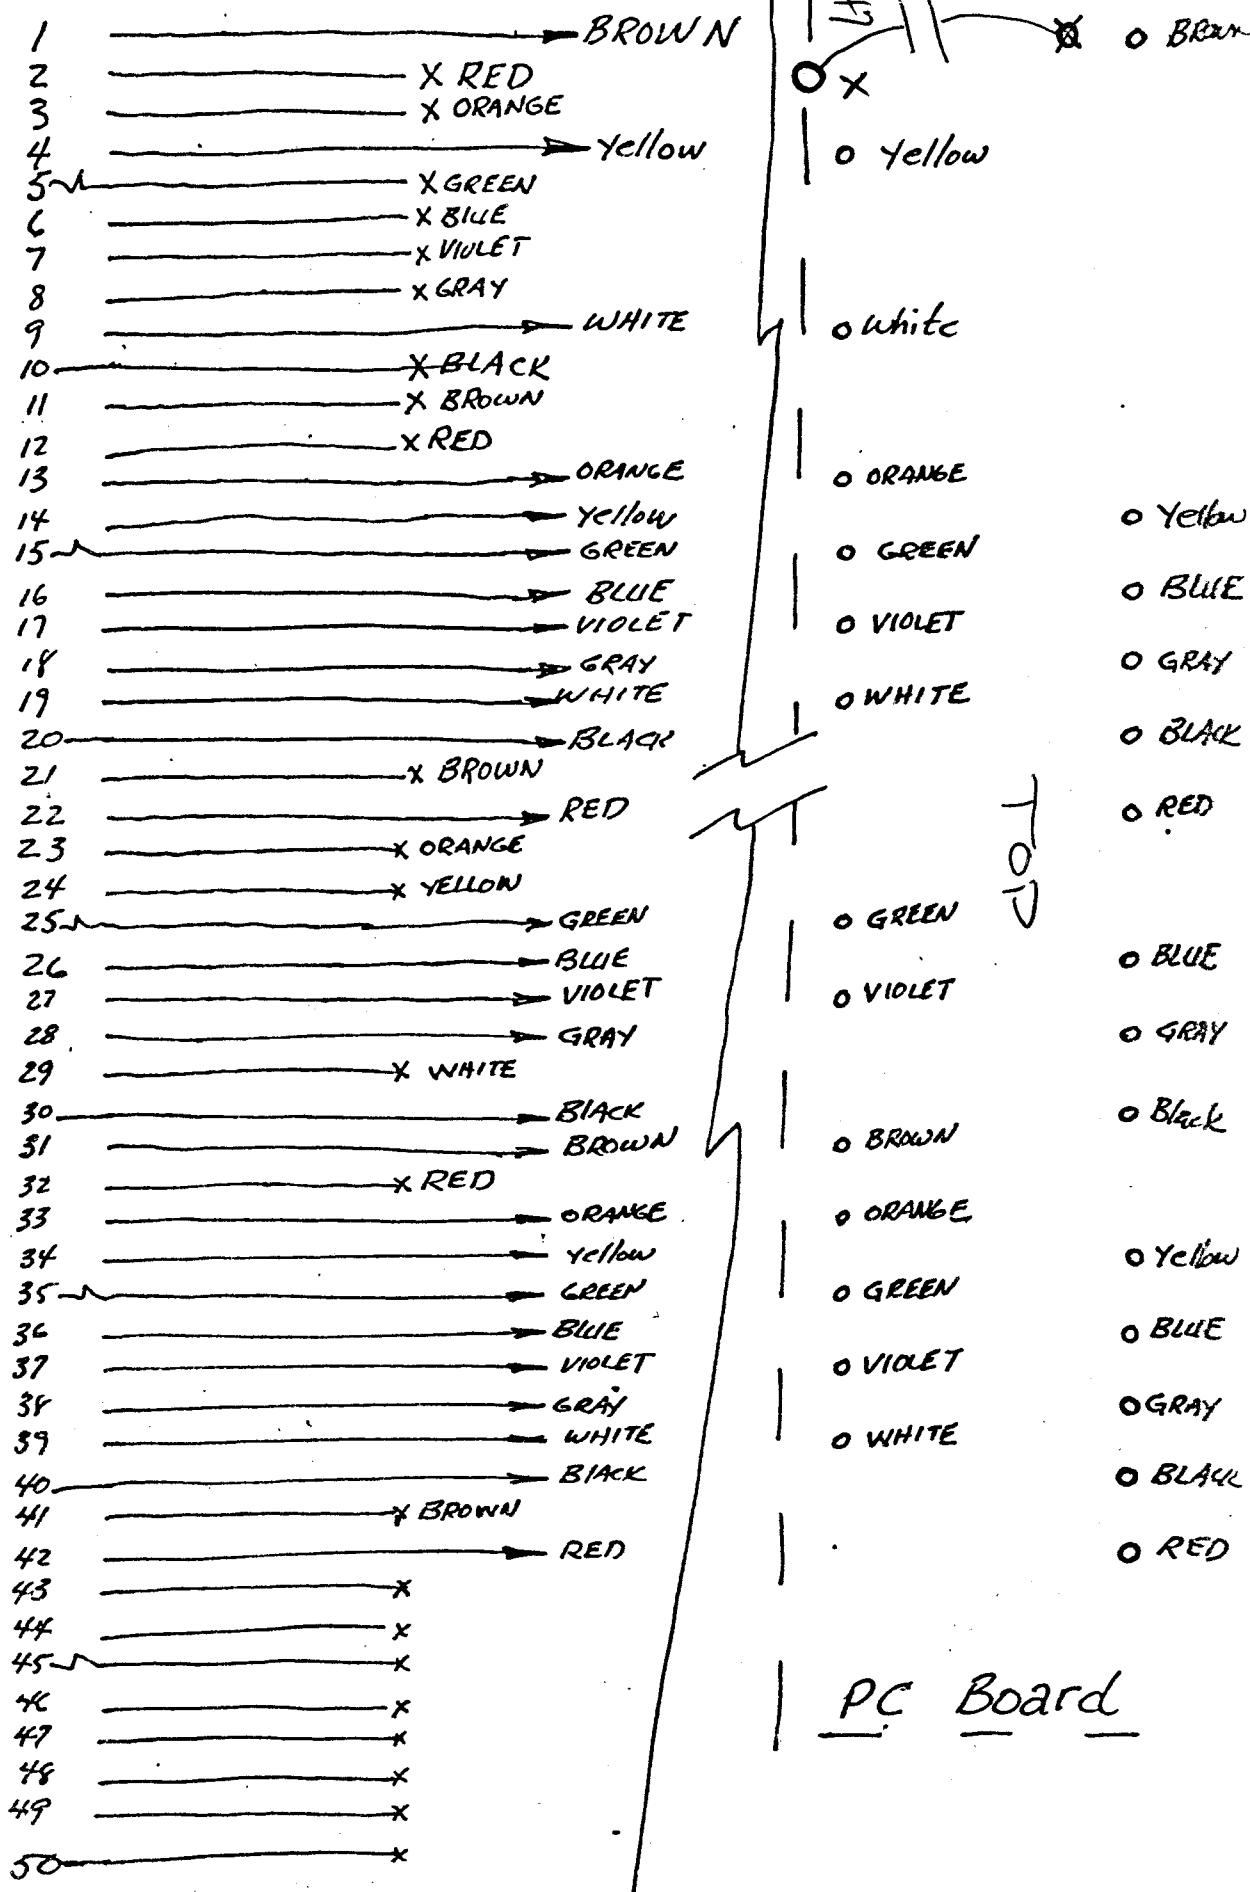 1 BROWN
2 X RED
3 X ORANGE
4 Yellow
5 X GREEN
6 X BLUE
7 X VIOLET
8 X GRAY
9 WHITE
10 X BLACK
11 X BROWN
12 X RED
13 ORANGE
14 Yellow
15 GREEN
16 BLUE
17 VIOLET
18 GRAY
19 WHITE
20 BLACK
21 X BROWN
22 RED
23 X ORANGE
24 X YELLOW
25 GREEN
26 BLUE
27 VIOLET
28 GRAY
29 X WHITE
30 BLACK
31 BROWN
32 X RED
33 ORANGE
34 Yellow
35 GREEN
36 BLUE
37 VIOLET
38 GRAY
39 WHITE
40 BLACK
41 X BROWN
42 RED
43 X
44 X
45 X
46 X
47 X
48 X
49 X
50 X
X
Yellow
White
ORANGE
GREEN
VIOLET
WHITE
GREEN
VIOLET
BROWN
ORANGE
GREEN
VIOLET
WHITE
TOP
Yellow
BLUE
GRAY
BLACK
RED
BLUE
GRAY
Black
Yellow
BLUE
GRAY
BLACK
RED
PC Board